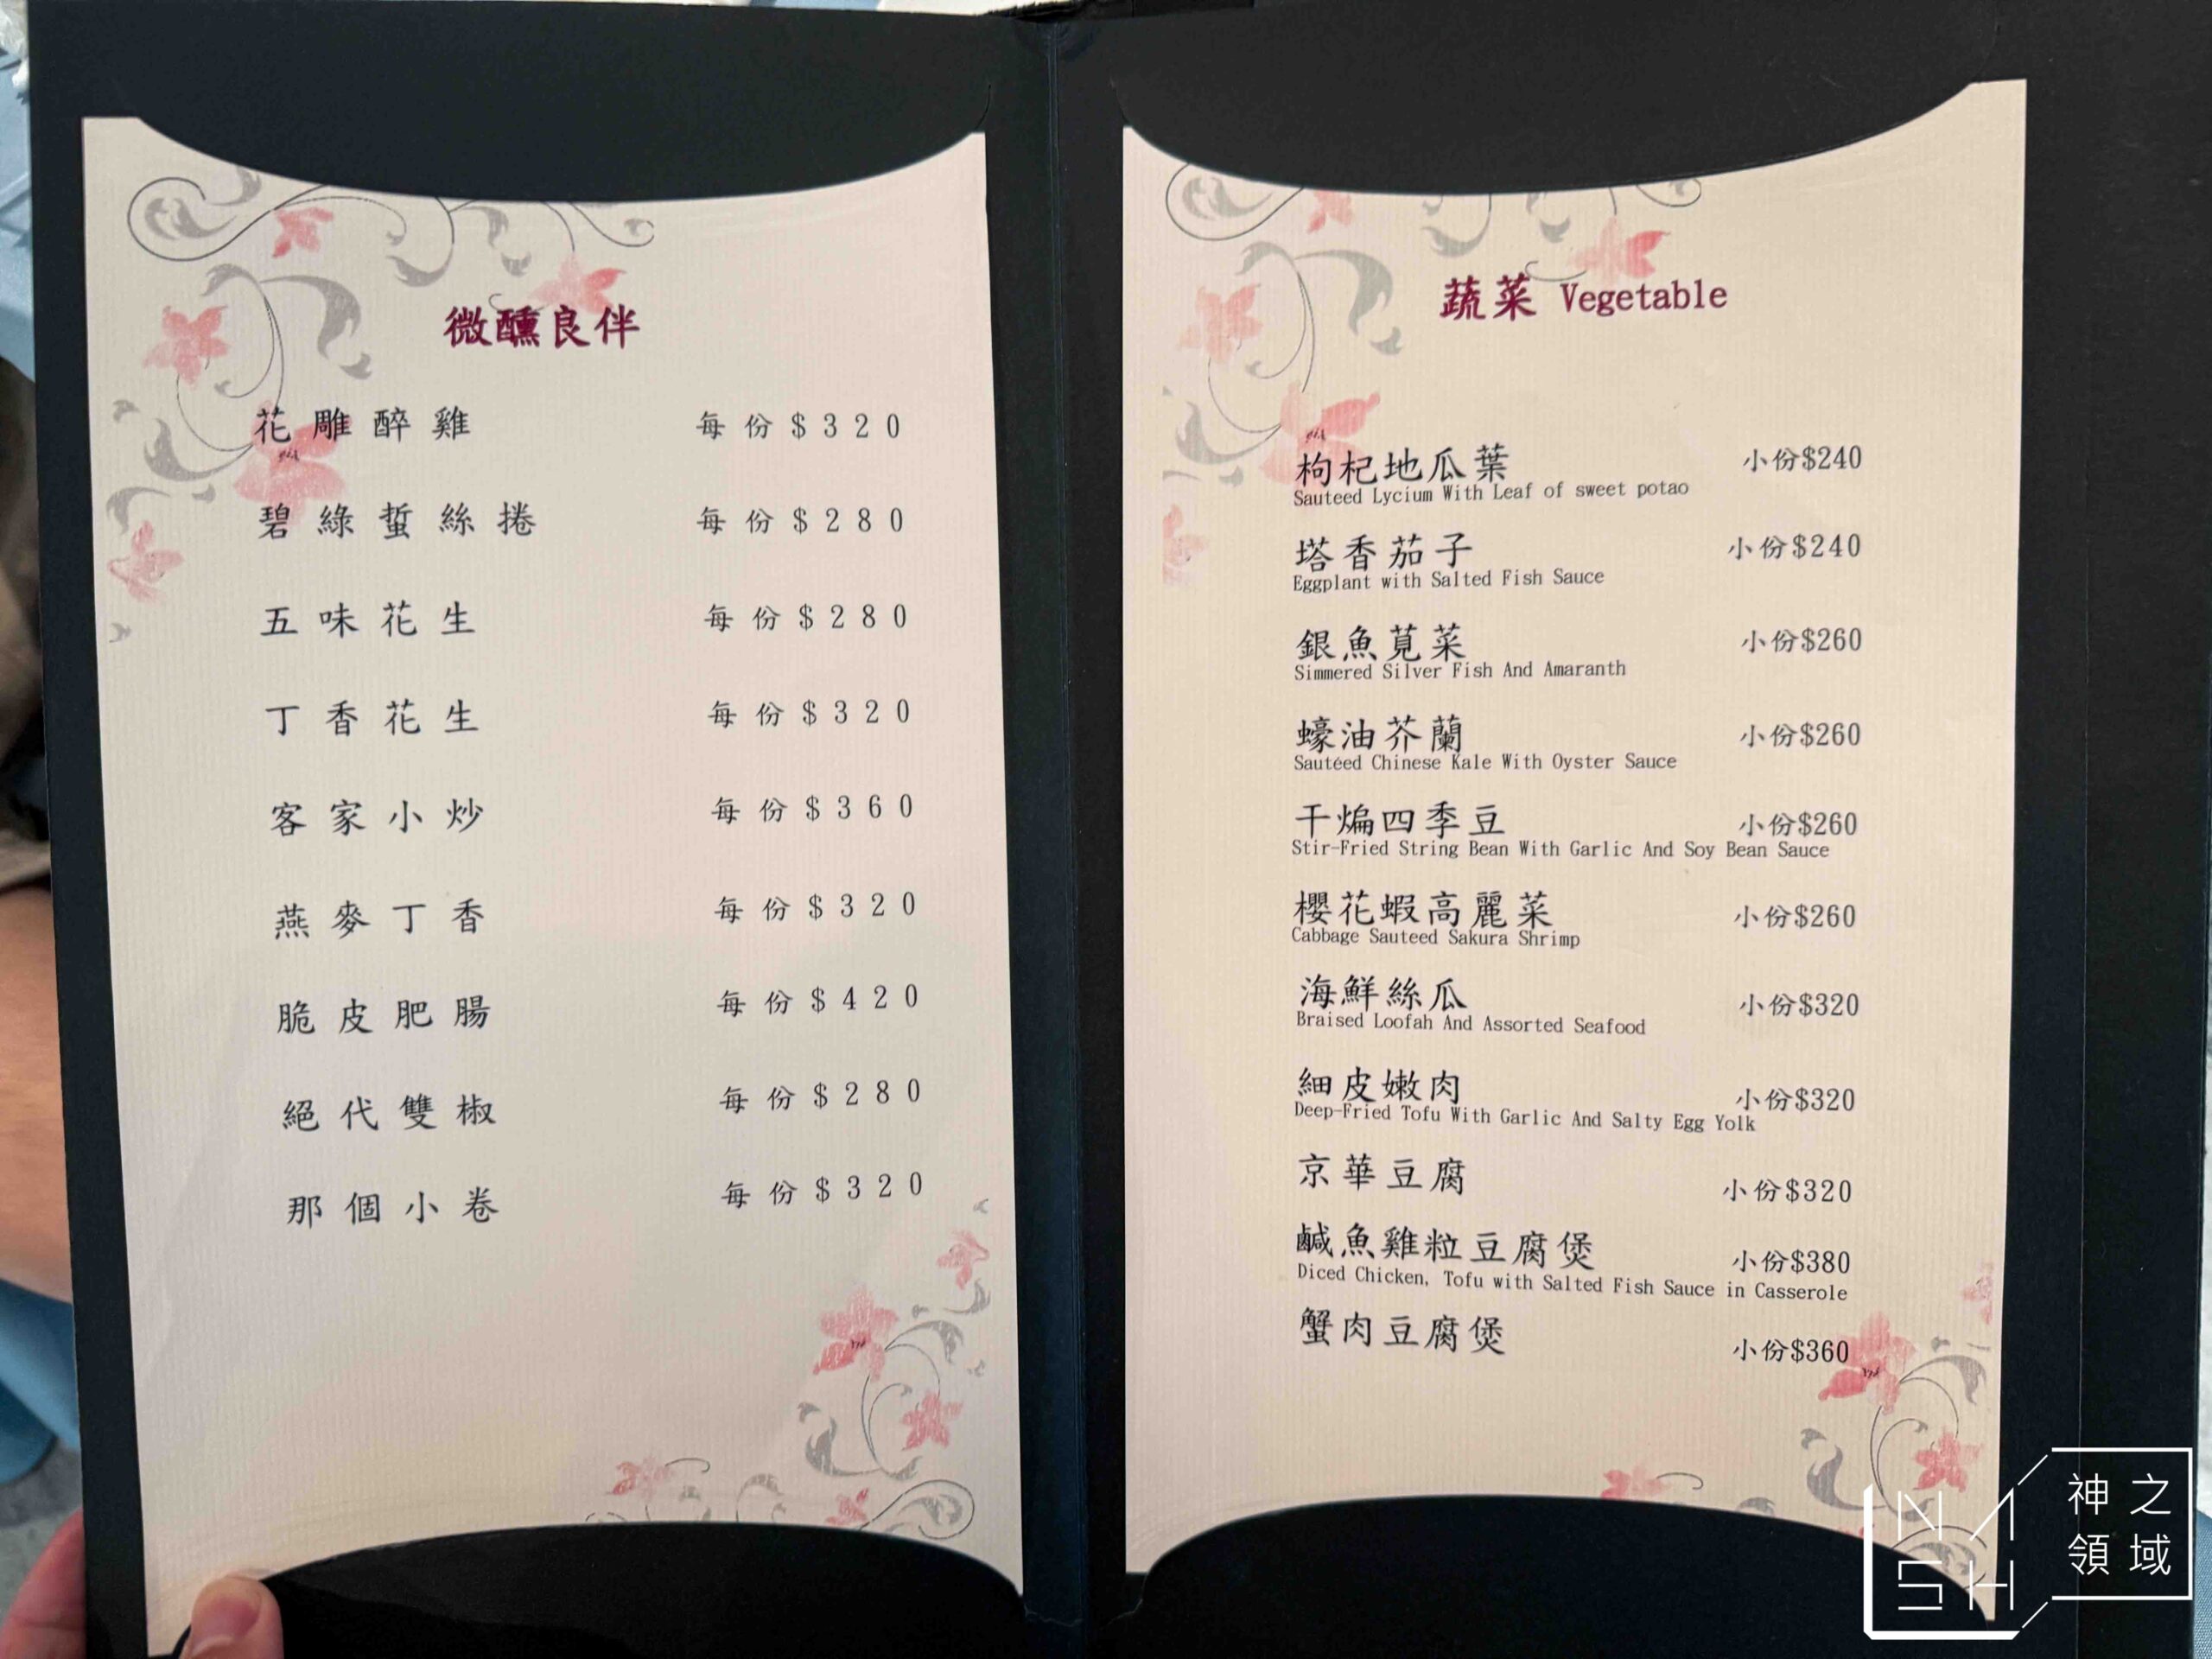 微醺良伴
花雕醉雞 每份$320
碧綠蜇絲捲 每份$280
五味花生 每份$280
丁香花生 每份$320
客家小炒 每份$360
燕麥丁香 每份$320
脆皮肥腸 每份$420
絕代雙椒 每份$280
那個小卷 每份$320
蔬菜 Vegetable
枸杞地瓜葉 小份$240
Sauteed Lycium With Leaf of sweet potao
塔香茄子 小份$240
Eggplant with Salted Fish Sauce
銀魚莧菜 小份$260
Simmered Silver Fish And Amaranth
蠔油芥蘭 小份$260
Sautéed Chinese Kale With Oyster Sauce
干煸四季豆 小份$260
Stir-Fried String Bean With Garlic And Soy Bean Sauce
櫻花蝦高麗菜 小份$260
Cabbage Sauteed Sakura Shrimp
海鮮絲瓜 小份$320
Braised Loofah And Assorted Seafood
細皮嫩肉 小份$320
Deep-Fried Tofu With Garlic And Salty Egg Yolk
京華豆腐 小份$320
鹹魚雞粒豆腐煲 小份$380
Diced Chicken, Tofu with Salted Fish Sauce in Casserole
蟹肉豆腐煲 小份$360
神之
領域